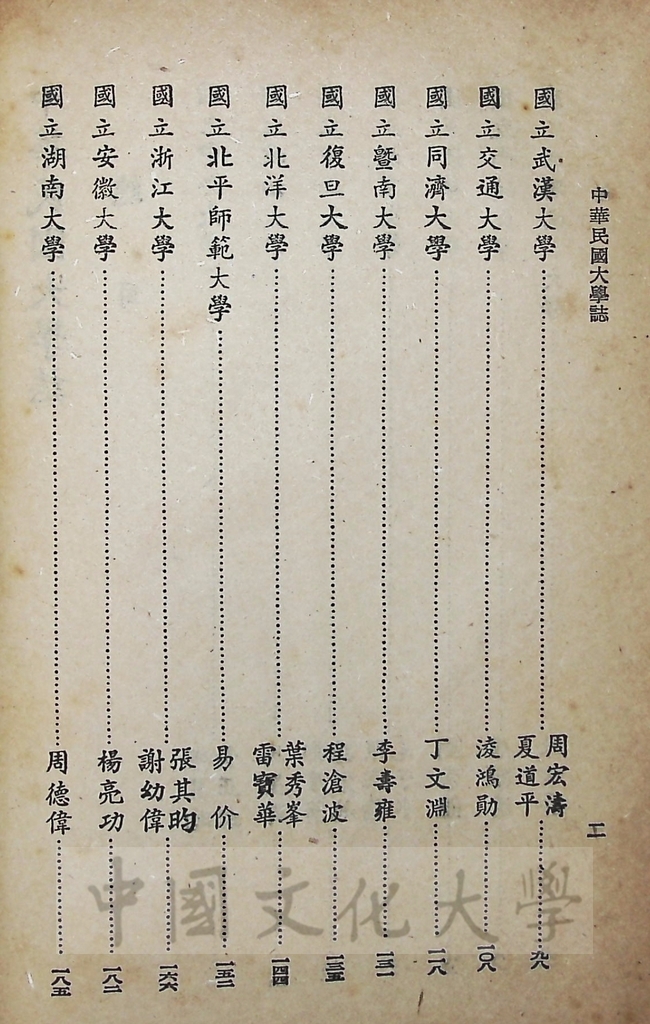 中華民國大學誌
二
國立武漢大學 周宏濤 夏道平 九八
國立交通大學 淩鴻勛 一〇八
國立同濟大學 丁文淵 一一八
國立暨南大學 李壽雍 一三一
國立復旦大學 程滄波 一三五
國立北洋大學 葉秀峯 雷寶華 一四四
國立北平師範大學 易价 一五二
國立浙江大學 張其昀 謝幼偉 一六六
國立安徽大學 楊亮功 一八二
國立湖南大學 周德偉 一八五
中國文化大學